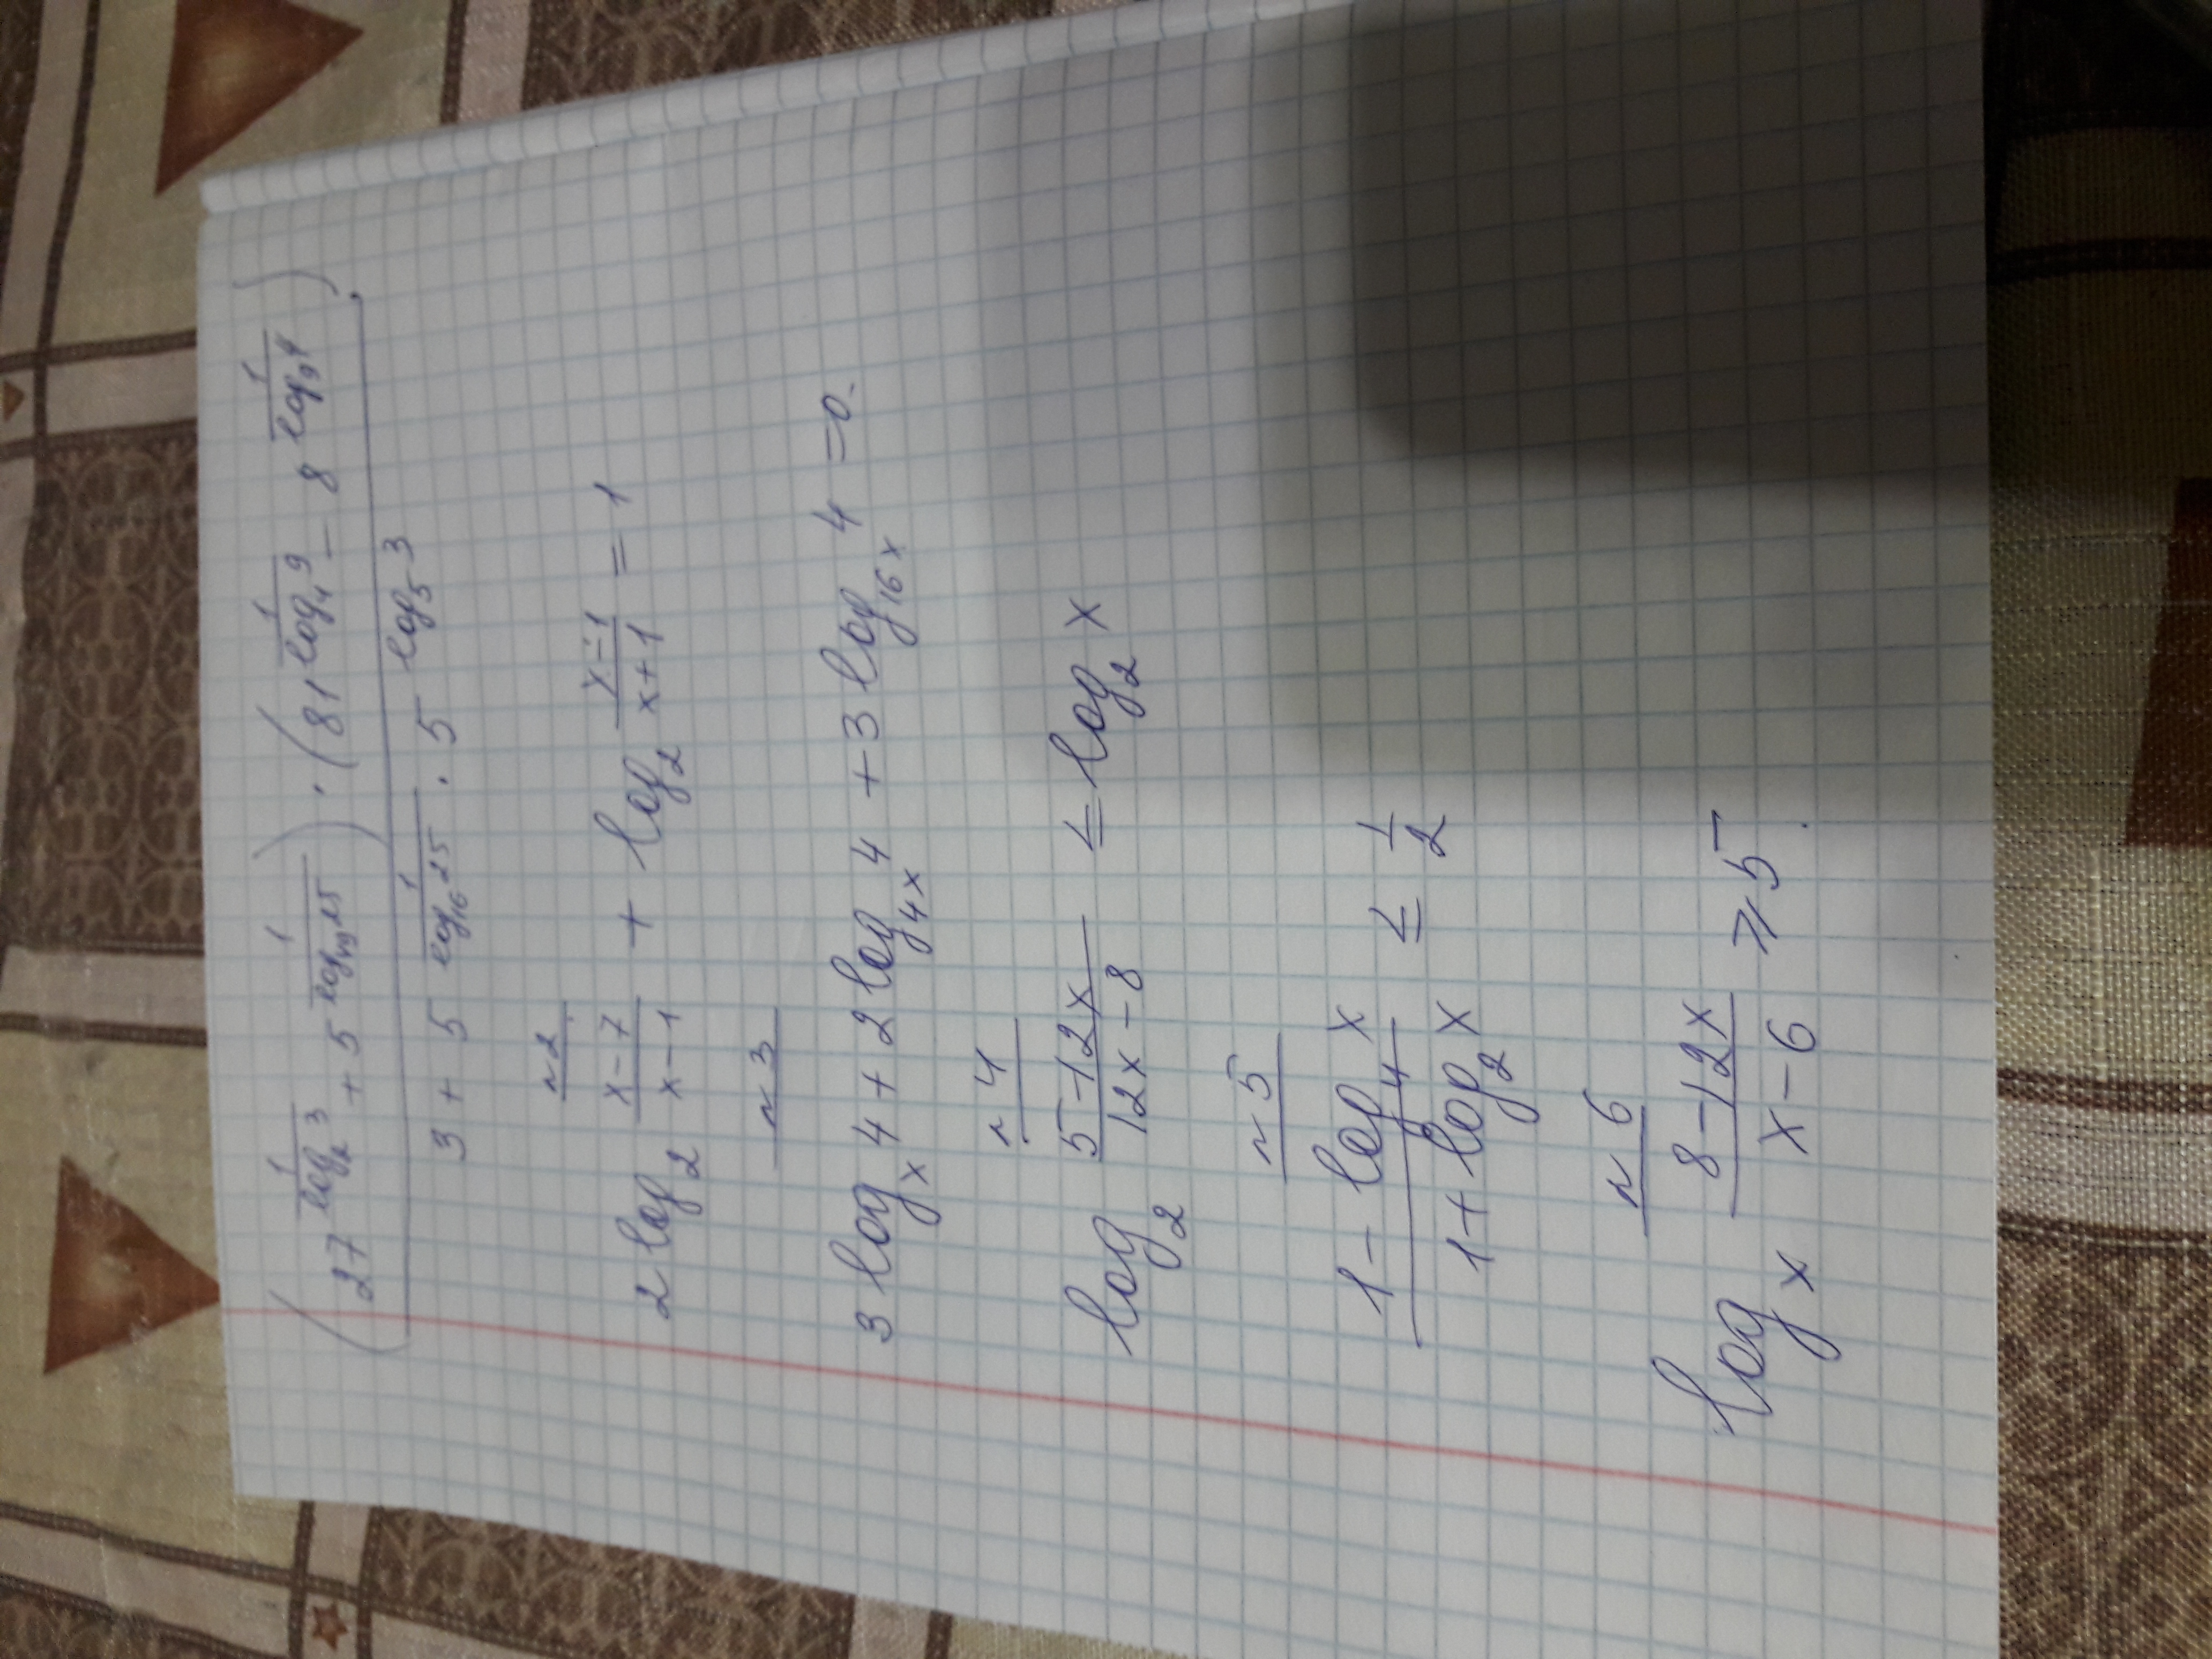 (27^{1/log_2 3} + 5^{1/log_{49} 25}) · (81^{1/log_4 9} - 8^{1/log_9 4}).
3 + 5^{1/log_{16} 25} · 5^{log_5 3}
n 2.
2 log_2 (x-7)/(x-1) + log_2 (x-1)/(x+1) = 1
n 3
3 log_x 4 + 2 log_{4x} 4 + 3 log_{16x} 4 = 0.
n 4
log_2 (5-12x)/(12x-8) ≤ log_2 x
n 5
(1 - log_4 x)/(1 + log_2 x) ≤ 1/2
n 6
log_x (8-12x)/(x-6) ⩾ 5.